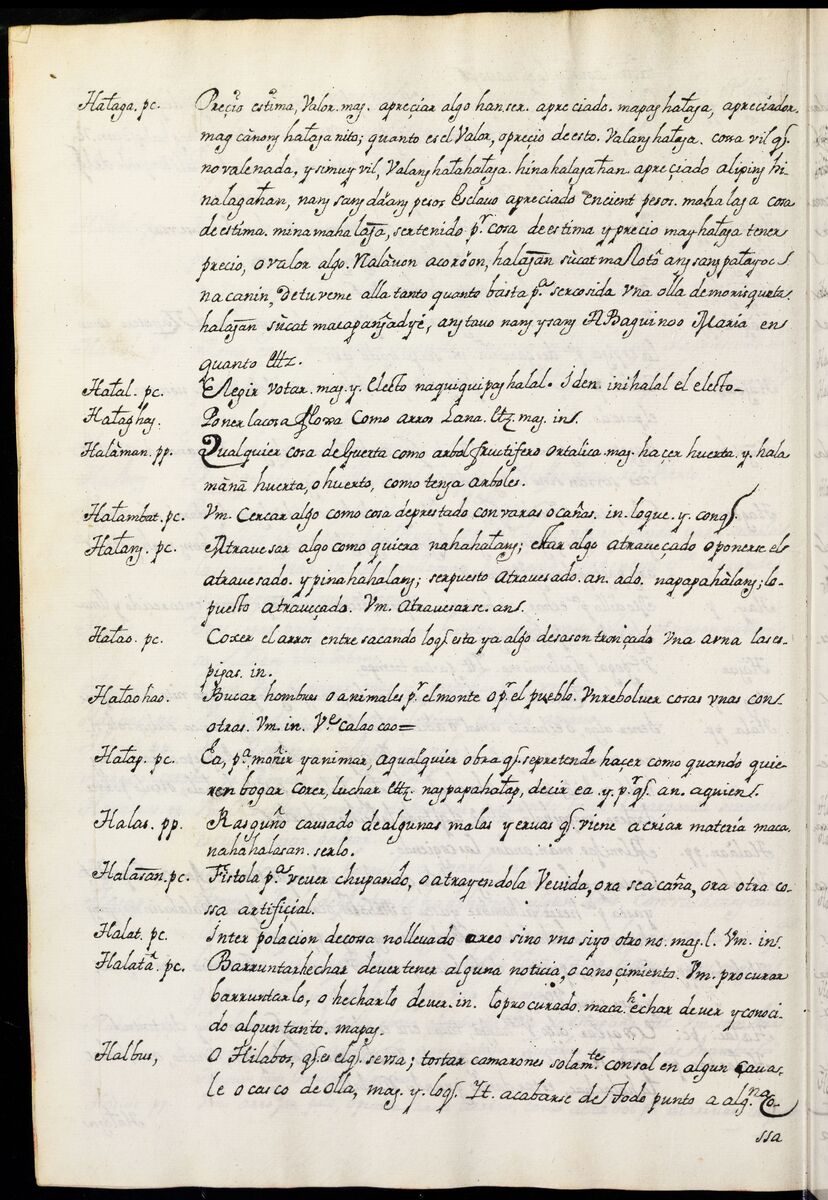 Halaga. pc. Preçio estima, Valor. mag. apreçiar algo han. ser. apreciado. mapag halaga, apreçiador.
magcanong halaga nito; quanto es el Valor, o precio de esto. Valang halaga. cossa vil qe.
no vale nada, y si muy vil, Valang halahalaga. hinahalagahan. apreçiado aliping hi
nalagahan, nang sangdaang pesos Esclavo apreciado en cient pesos. mahalaga cosa
de estima. minamahalaga, ser tenido pr. cosa de estima y precio may halaga tener
precio, o valor algo. Nalàuon acoröon, halagan sùcat maloto ang sang palayoc
na canin, Detuveme alla tanto quanto basta pa. ser cosida vna olla de morisqueta.
halagan sùcat macapang, ang tauo nang ysang ABaguinoo Maria en
quanto Ettz.
Halal. pc. Elegir votar. mag. y. Electo naquiquipag halal. Iden. inihalal el electo_
Halaghag. Poner la cosa flowa como arros Lana. Etz. mag. in.
Halàman. pp. Qualquier cosa de huerta como arbol fructifero ortalica mag. haçer huerta. y. hala
mànã huerta, o huerto, como tenga arboles.
Halambat. pc. Vm. Cercar algo como cosa de prestado con varas o cañas. in. lo que. y. conq.
Halang. pc. Atravesar algo como quiera nahahalang; estar algo atraveçado o ponerse el
atravesado. y pinahahalang; ser puesto atravesado. an. ado. napapahàlang; lo
puesto atraveçado. Vm. atravesarse. an.
Halao. pc. Coxer el arros entresacando loq. esta ya algo desason tronçada vna avna las es-
pigas. in.
Halaohao. Bucar hombres o animales pr. el monte o pr. el pueblo. Vn reboluer cosas vnas con
otras. Vm. in. Ve. calaocao=
Halap. pc. Ea, pa. moñir y animar, a qualquier obra qe. se pretende haçer como quando quie-
ren bogar corer, luchar Ettz. nagpapahalap, decir ea. y. pr. q. an. a quien.
Halas. pp. Rasguño causado de algunas malas yeruas q. viene a criar materia maca.
nahahalasan. serlo.
Halasan. pc. Fistola pa. vever chupando, o atrayendo la Vevida, ora sea caña, ora otra co-
ssa artifiçial.
Halat. pc. Inter polacion de cossa no llevado areo sino vno si yo otro no. mag. l. Vm. in.
Halata. pc. Barruntar hechar de ver tener alguna noticia, o conoçimiento. Vm. procurar
barruntarlo, o hecharlo de ver. in. lo procurado. maca. hechar de ver y conoci
do algun tanto. mapag.
Halbus, o Hilabos, q. es el q. se vssa; tostar camarones solamte. con sol en algun cauas-
le o casco de olla, mag. y. loq. It. acabarse de todo punto a algna. co-
ssa